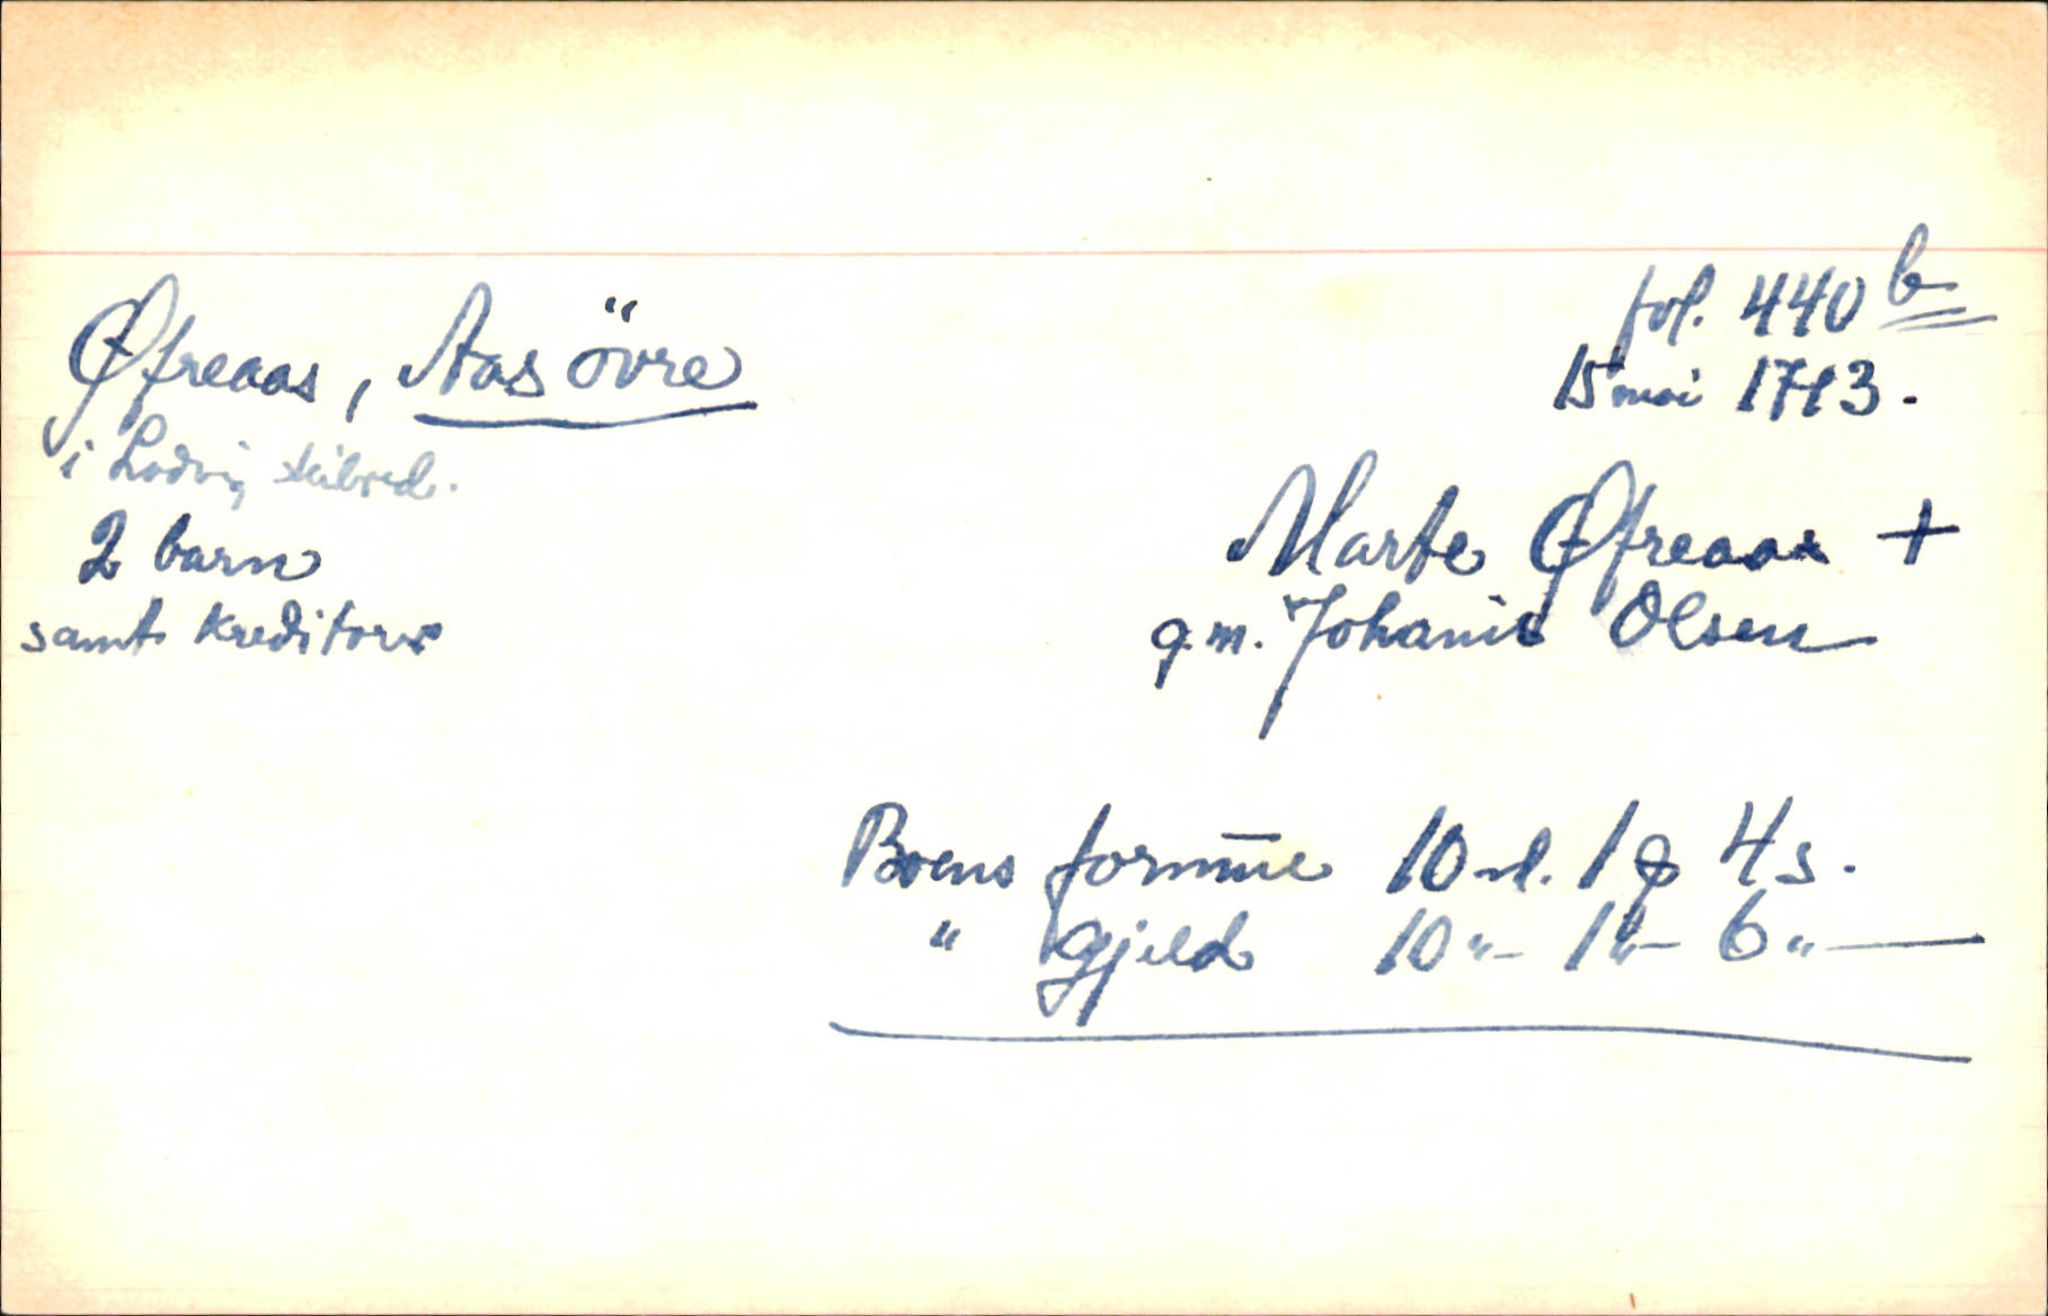 fol. 440 b
Øfreaas, Aas övre
15 mai 1713.
i Lodvig
2 barn
samt kreditorer
Marte Øfreaas +
g.m. Johanis Olsen
Boens formue 10 rd. 1 q 4 s.
" gjeld 10 "- 1 "- 6 "—